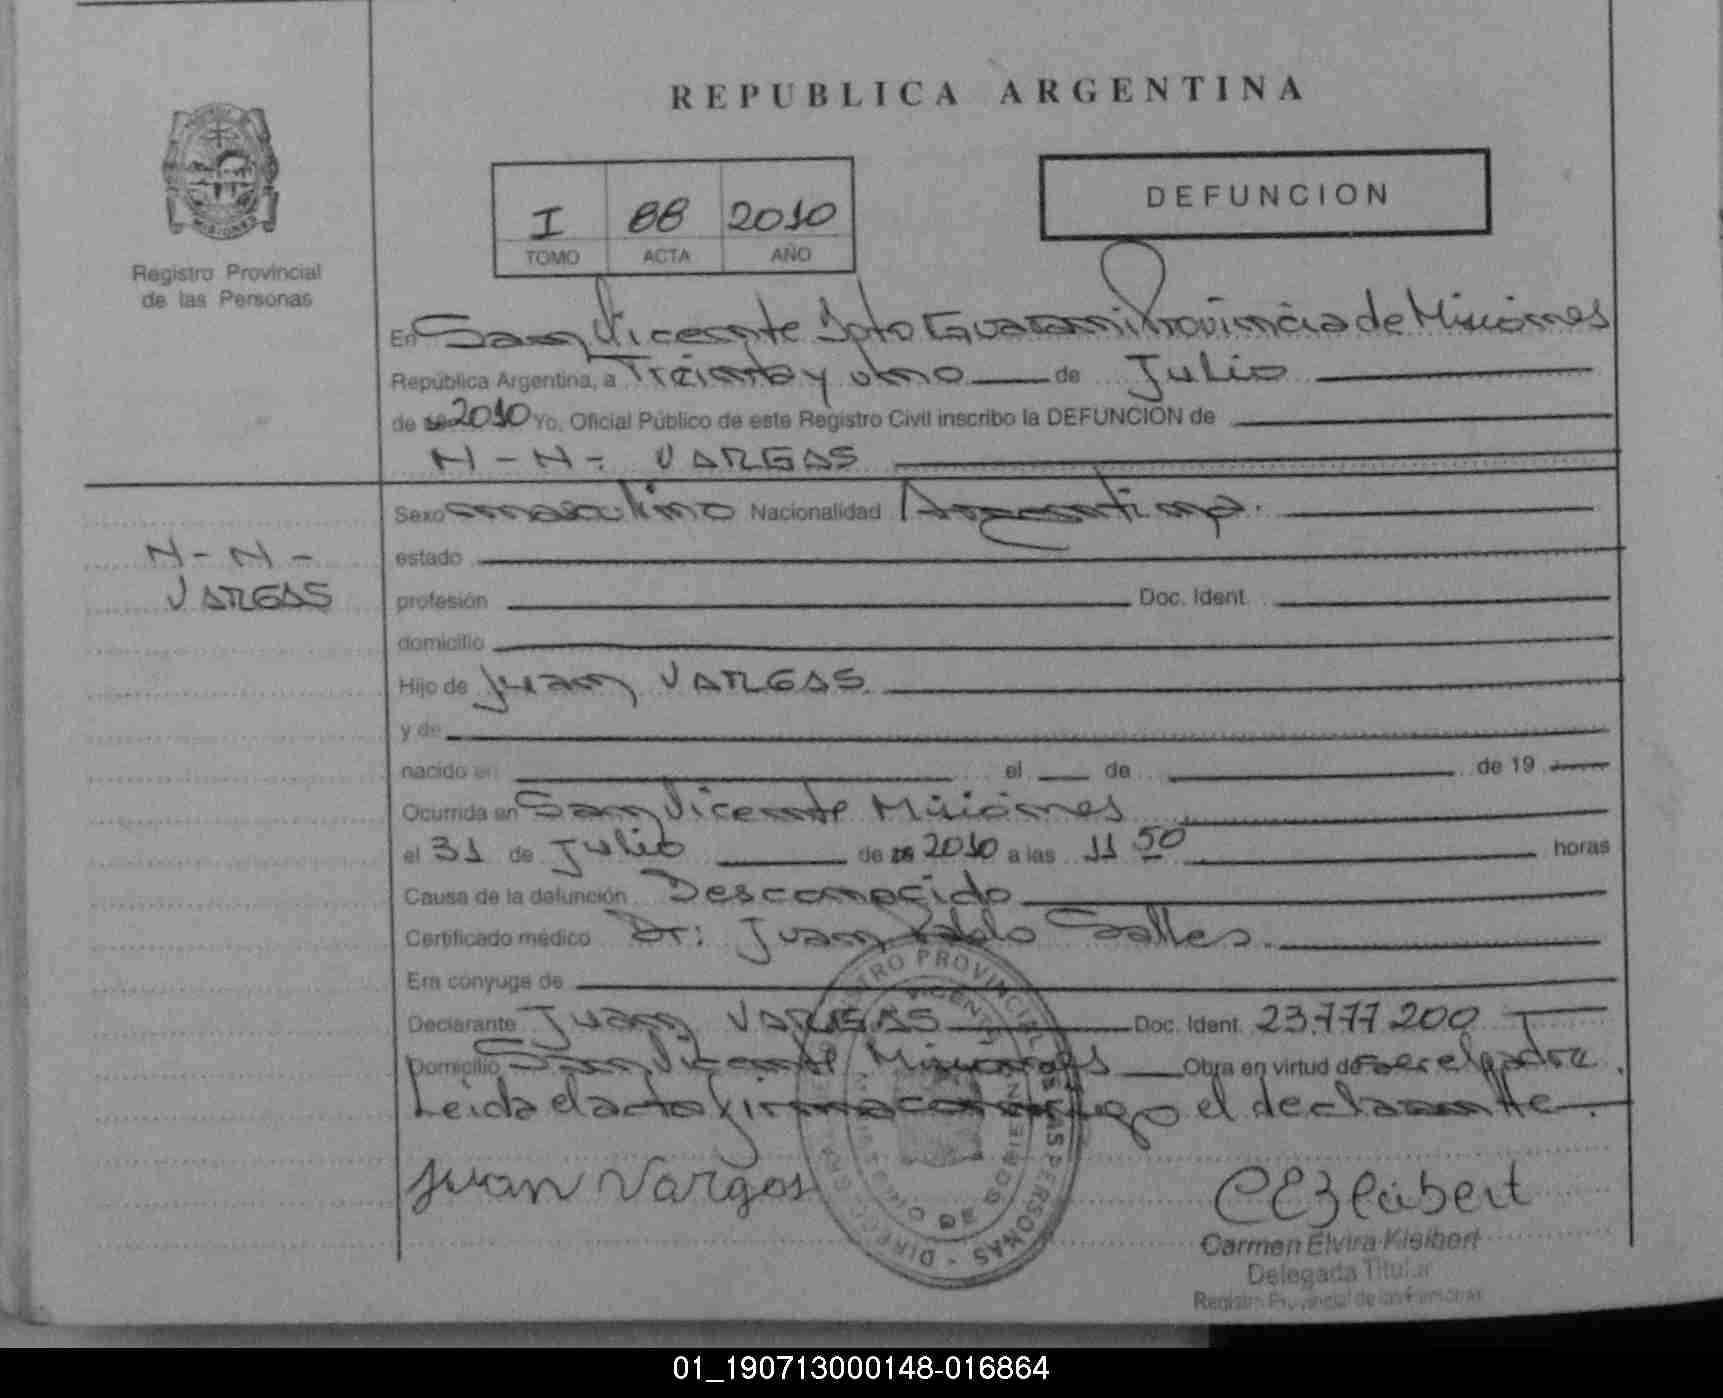 REPUBLICA ARGENTINA
DEFUNCION
I 88 2010
TOMO ACTA AÑO
MISIONES
Registro Provincial
de las Personas
En San Vicente Dpto Guarani Provincia de Misiones
República Argentina, a Treinta y uno de Julio
de 2010 Yo, Oficial Público de este Registro Civil inscribo la DEFUNCION de
N-N- VARGAS
N-N-
VARGAS
Sexo masculino Nacionalidad Argentina.
estado
profesión Doc. Ident.
domicilio
Hijo de Juan VARGAS
y de
nacido en el de de 19
Ocurrida en San Vicente Misiones
el 31 de Julio de 2010 a las 11 50 horas
Causa de la defunción Desconocido
Certificado médico Dr: Juan Pablo Salles.
Era cónyuge de
Declarante Juan VARGAS Doc. Ident. 23.777.200
Domicilio San Vicente Misiones Obra en virtud de ser el padre.
Leida el acta firma conmigo el declarante.
Juan Vargas
REGISTRO PROVINCIAL DE LAS PERSONAS
SAN VICENTE
Carmen Elvira Kleibert
Delegada Titular
Registro Provincial de las Personas
01_190713000148-016864